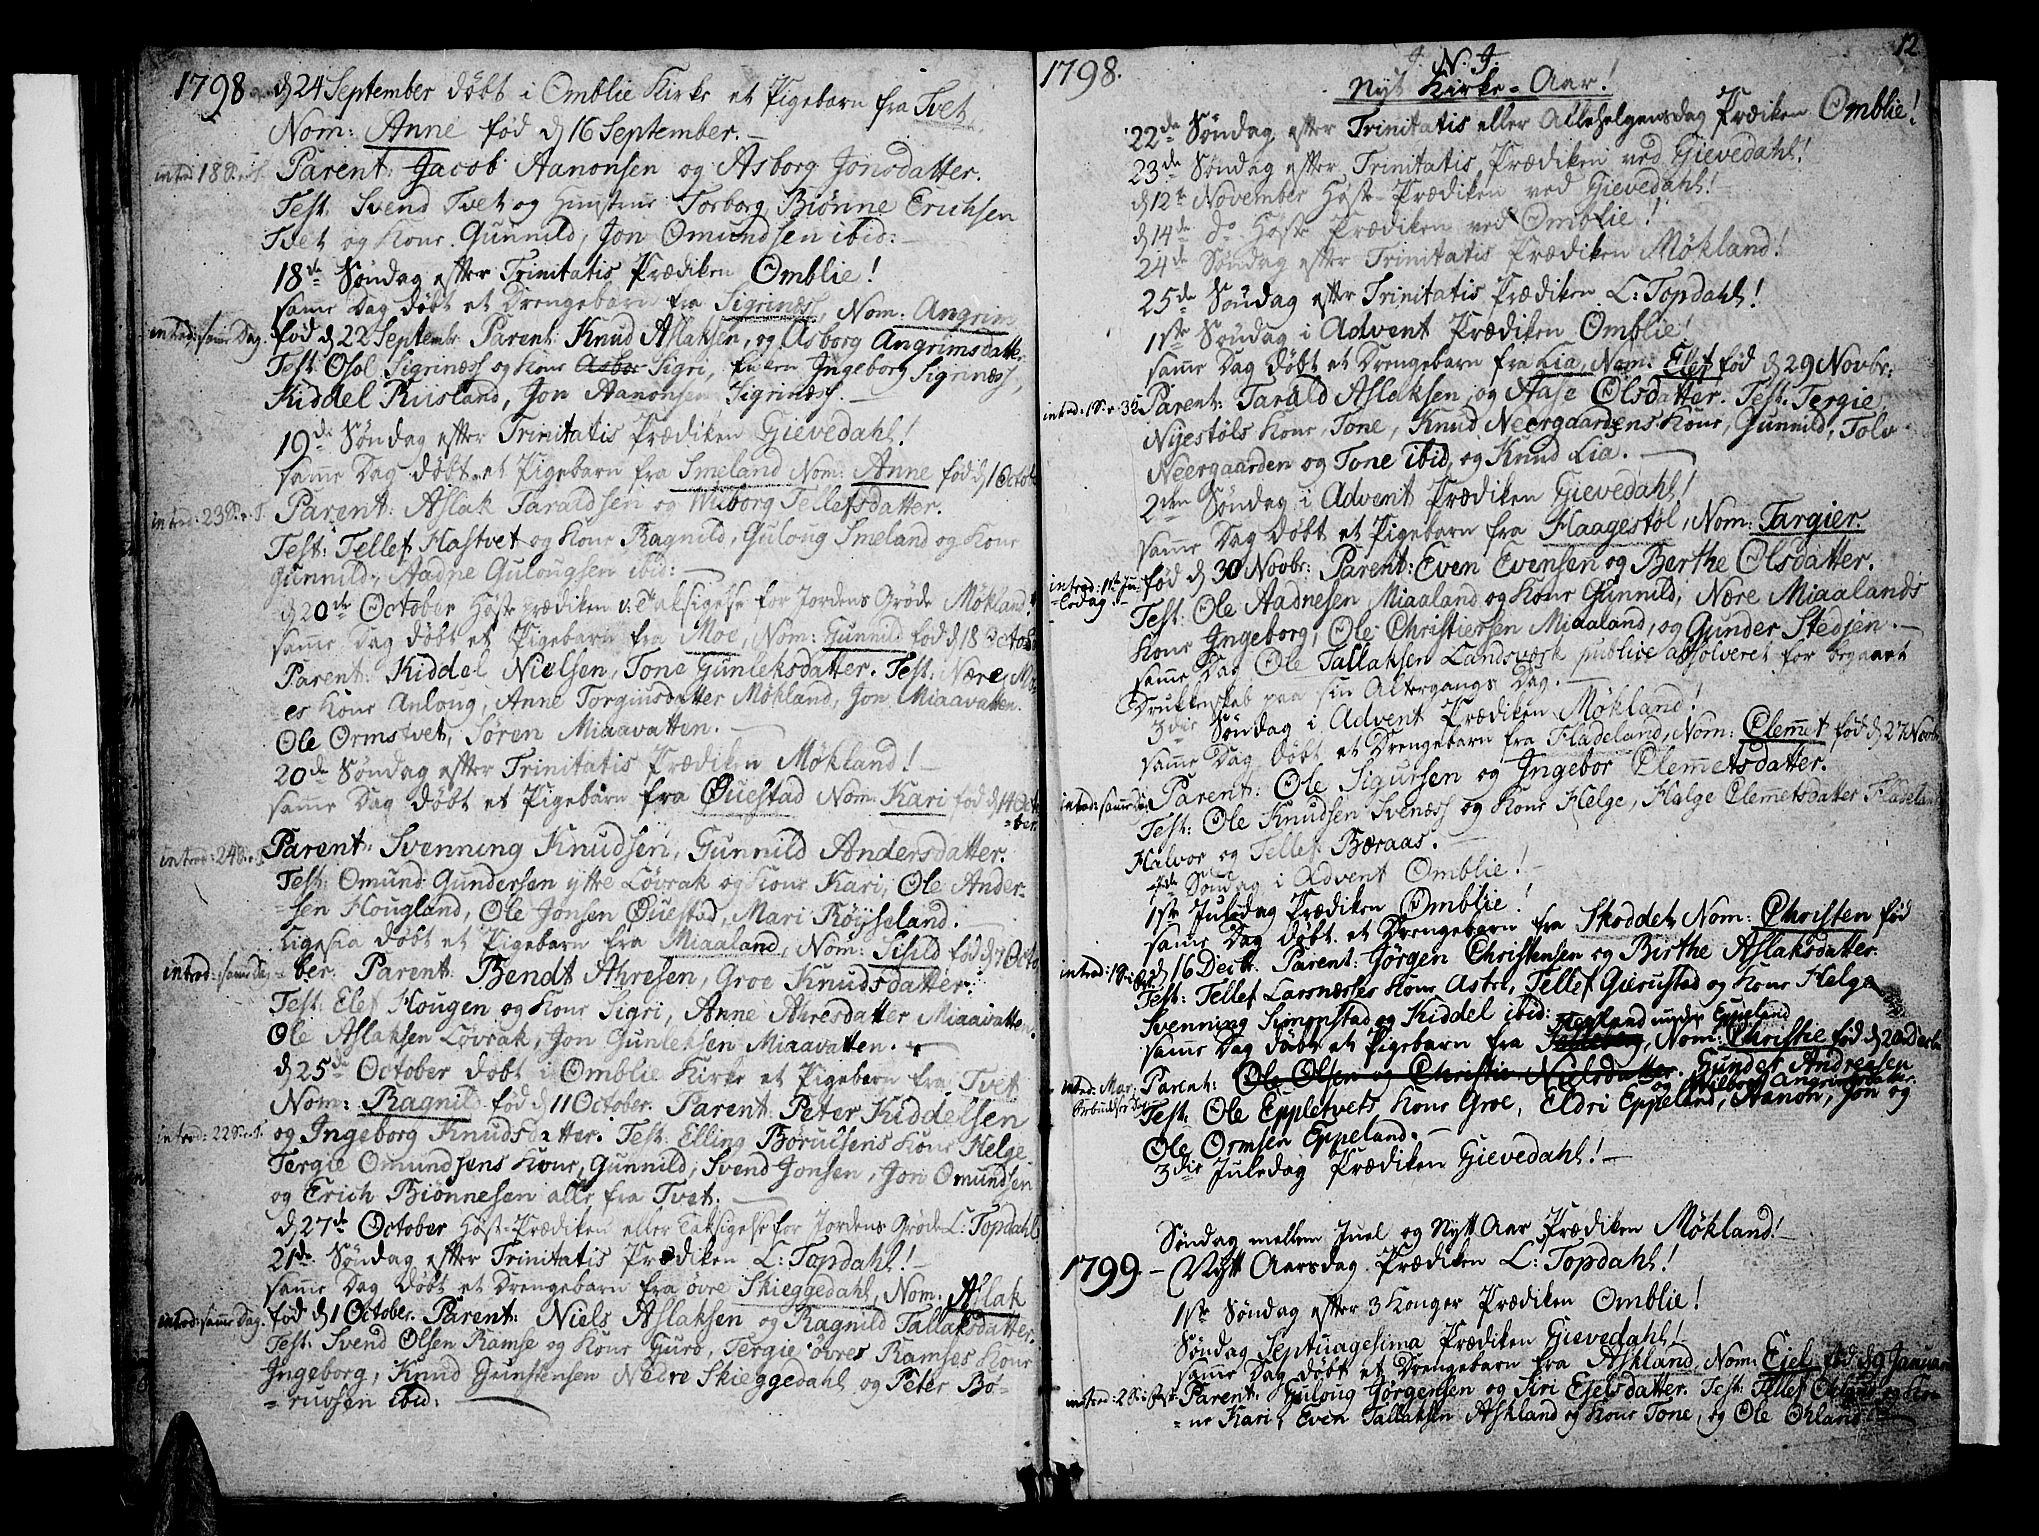 1798 d 24 September døbt i Omblie Kirke et Pigebarn fra Tvet,
Nom: Anne fød d 16 September. —
introd: 18 S. e. T. Parent: Jacob Aanonsen og Asborg Jonsdatter.
Test. Svend Tvet og Torborg, Biønne Erichsen
Tvet og Kone Gunnild, Jon Omundsen ibid: —
18de Søndag efter Trinitatis Prædiken Omblie!
samme Dag døbt et Drengebarn fra Sigrinæs, Nom: Angrim
introd: samme Dag. fød d 22 Septembr Parent: Knud Aslaksen, og Asborg Angrimsdatter.
Test: Osol Sigrinæss og Kone Asbor Sigri, Enken Ingeborg Sigrinæss,
Kiddel Riisland, Jon Aanonsen Sigrinæss. —
19de Søndag efter Trinitatis Prædiken Gievedahl!
samme Dag døbt et Pigebarn fra Smeland Nom: Anne fød d 1 Octob
introd: 23 S. e. T. Parent: Aslak Taraldsen og Wiborg Tellefsdatter.
Test: Tellef Hastvet og Kone Ragnild, Guloug Smeland og Kone
Gunnild, Aadne Gulougsen ibid: —
d 20de October Høst-prædiken v: Taksigelse for Jordens Grøde Møkland
samme Dag døbt et Pigebarn fra Moe, Nom: Gunnild fød d 18 Octob
Parent: Kiddel Nielsen, Tone Gunleksdatter. Test: Nære Mo
es Kone Anloug, Anne Torginsdatter Møkland, Jon Miaavatten.
Ole Ormstvet, Søren Miaavatten. —
20de Søndag efter Trinitatis Prædiken Møkland! —
samme Dag døbt et Pigebarn fra Øuestad Nom: Kari fød d 14 Octo
=ber.
introd: 24 S. e. T. Parent: Svenning Knudsen, Gunnild Andersdatter.
Test: Omund Gundersen yttre Løvrak og Kone Kari, Ole Ander-
=sen Hougland, Ole Jonsen Øuestad, Mari Røysseland. —
Ligesaa døbt et Pigebarn fra Miaaland, Nom: Sisild fød d 7 Octo
introd: samme Dag =ber. Parent: Bendt Ahresen, Groe Knudsdatter.
Test: Elef Hougen og Kone Sigri, Anne Ahresdatter Miaavatten
Ole Aslaksen Løvrak, Jon Gunleksen Miaavatten. —
d 25de October døbt i Omblie Kirke et Pigebarn fra Tvet
Nom: Ragnild fød d 11 October. Parent: Peter Kiddelsen
introd: 22 S. e. T. og Ingeborg Knudsdatter. Test: Elling Boruelsens Kone Helge
Tergie Omundsens Kone, Gunnild, Svend Jonsen, Jon Omundsen
og Erich Biønnesen alle fra Tvet. —
d 27de October Høst-Prædiken eller Taksigelse for Jordens Grøde L: Topdahl
21de Søndag efter Trinitatis Prædiken L: Topdahl! —
samme Dag døbt et Drengebarn fra øvre Skieggedahl, Nom: Aslak
introd: samme Dag. fød d 1 October. Parent: Niels Aslaksen og Ragnild Tallaksdatter.
Test: Svend Olsen Ramse og Kone Guro, Tergie øvres Ramses Kone
Ingeborg, Knud Gunstensen Nedre Skieggedahl og Peter Bø-
=ruvsen ibid: —
12
1798. J. N. J.
Nyt Kirke-Aar!
22de Søndag efter Trinitatis eller Allehelgensdag Prædiken Omblie!
23de Søndag efter Trinitatis Prædiken ved Gievedahl!
d 12te November Høst-Prædiken ved Gievedahl!
d 14de do Høst Prædiken ved Omblie!
24de Søndag efter Trinitatis Prædiken Møkland!
25de Søndag efter Trinitatis Prædiken L: Topdahl!
1ste Søndag i Advent Prædiken Omblie!
samme Dag døbt et Drengebarn fra Lia, Nom: Elef fød d 29 Novbr:
introd: 1 S. e. 3 K. Parent: Tarald Aslaksen, og Aase Olsdatter. Test. Tergie
Nijestøls Kone, Tone, Knud Neergaardens Kone, Gunnild, Tolv
Neergaarden og Tone ibid, og Knud Lia. —
2den Søndag i Advent Prædiken Gievedahl!
samme Dag døbt et Pigebarn fra Haagestøl, Nom: Targier.
introd: fød d 30 Novbr: Parent: Even Evensen og Berthe Olsdatter.
Test: Ole Aadnesen Miaaland og Kone Gunnild, Nære Miaalands
Kone Ingeborg, Ole Christiersen Miaaland, og Gunder Stedjen. —
samme Dag Ole Tallaksen Landsværk publice absolveret for begaaet
Drukkenskab paa sin Altergangs Dag. —
3die Søndag i Advent Prædiken Møkland!
samme Dag døbt et Drengebarn fra Fladeland, Nom: Clemet fød d 27 Novbr
introd: samme Dag Parent: Ole Sigursen og Ingebor Clemetsdatter.
Test: Ole Knudsen Svenæss og Kone Helge, Halge Clemetsdatter Fladeland
Halvor og Tellef Bæraas. —
4de Søndag i Advent Omblie! —
1ste Juledag Prædiken Omblie!
samme Dag døbt et Drengebarn fra Skoddet, Nom: Christen fød
introd: d 16 Decbr. Parent: Jørgen Christensen og Birthe Aslaksdatter.
Test: Tellef Larsnæsses Kone Astri, Tellef Gierustad og Kone Helge
Svenning Simonstad og Kiddel ibid:
Hegland under Eppeland
samme Dag døbt et Pigebarn fra, Nom: Christie fød d 20 Decbr
introd: Mar: Parent: Ole Olsen og Christie Nielsdatter. Gunder Andresen
Forbudelse D. og Wilborg Angrimsdatter.
Test: Ole Eppletvets Kone Groe, Eldri Eppeland, Aanon, Jon og
Ole Ormsen Eppeland. —
3die Juledag Prædiken Gievedahl! —
Søndag mellem Juel og Nytt Aar Prædiken Møkland! —
1799. — Nytt Aarsdag Prædiken L: Topdahl!
1ste Søndag efter 3 Konger Prædiken Omblie!
Søndag Septuagesima Prædiken Gievedahl!
samme Dag døbt et Drengebarn fra Askland, Nom: Ejel fød d 9 Januar
introd: 2 S: i Fast Parent: Guloug Jørgensen og Siri Ejelsdatter. Test: Tellef og Ko-
=ne Kari, Even Tallaksen Askland og Kone Tone, og Ole Ohland